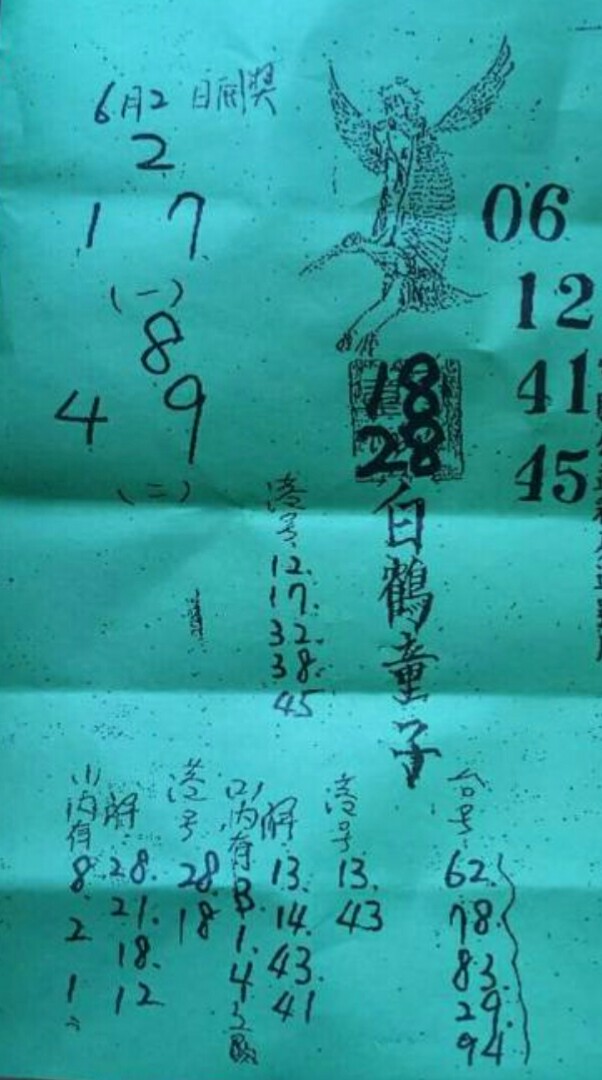 6月2日開獎
2
1 7
(一)
8
4 9
(二)
06
12
41
45
18
28
白鶴童子
港号
12.
17.
32.
38.
45
台号
62.
78.
83.
29.
94
港号
13.
43
解
13.
14.
43.
41
(2)内有
3.
1.
4
港号
28
18
解
28.
21.
18.
12
内有
8
2
1